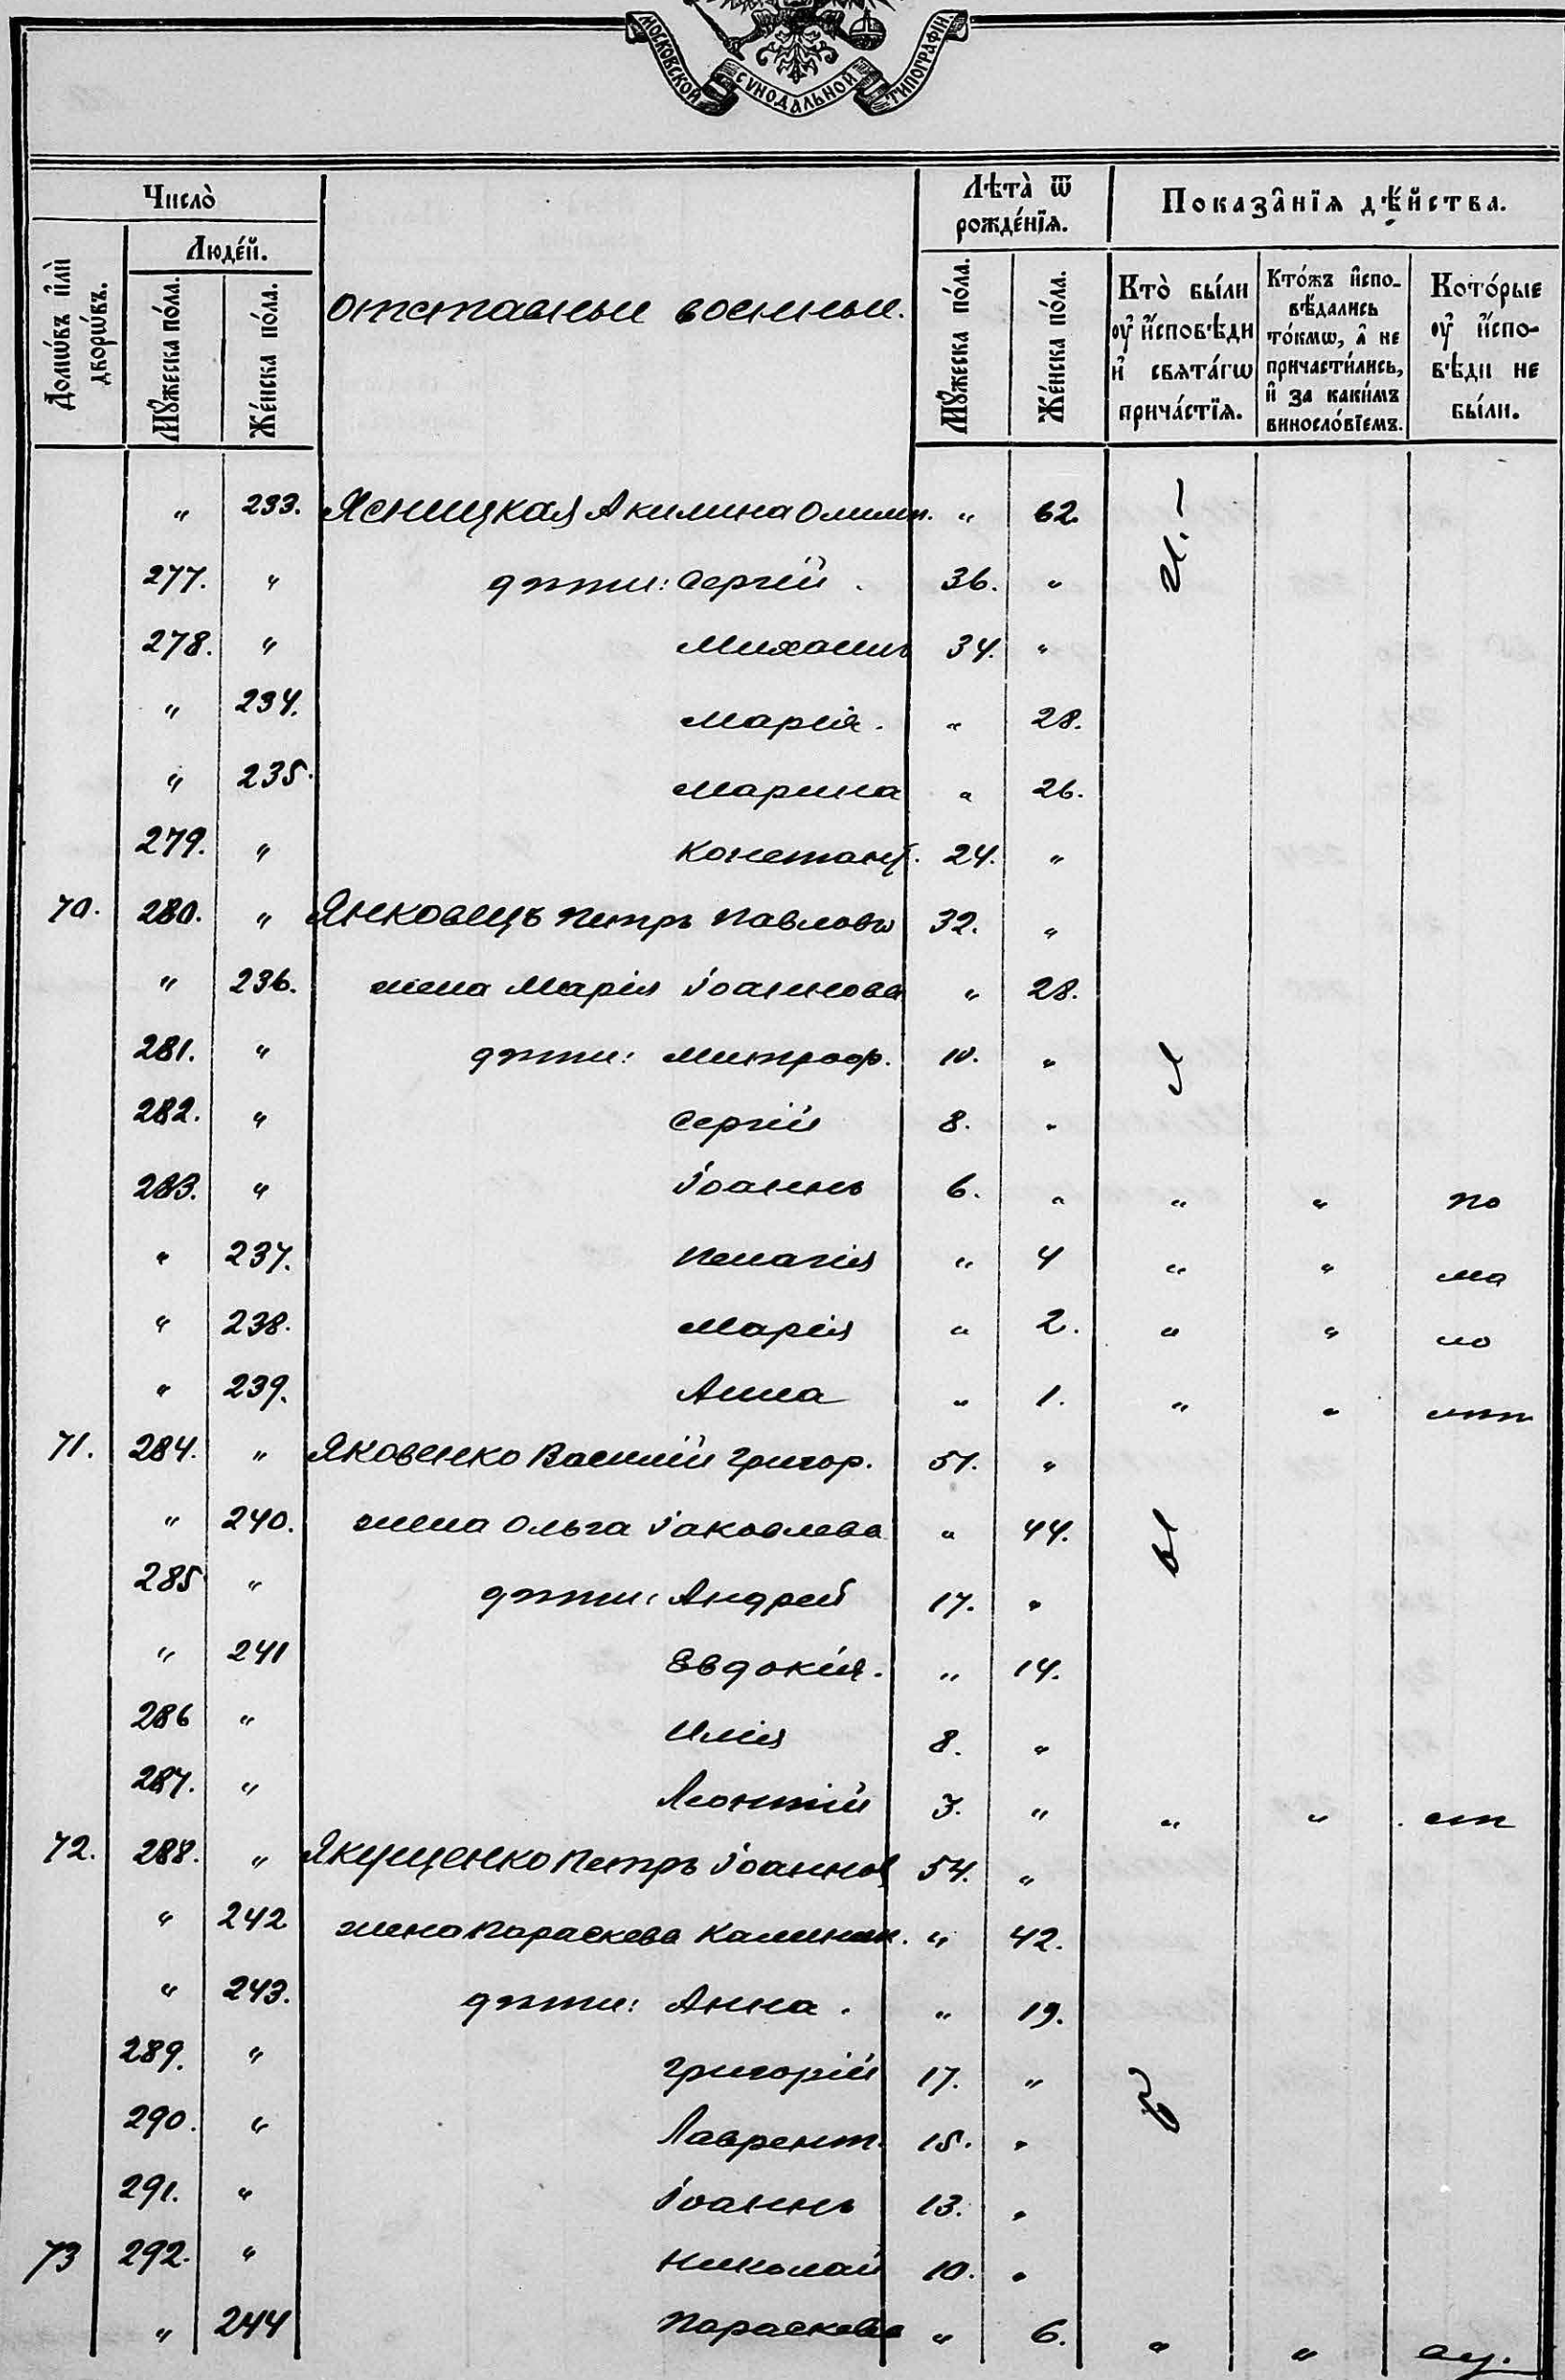 МОСКОВСКОЙ СѴНОДАЛЬНОЙ ТИПОГРАФІИ.
Число̀
Люде́й.
Домѡ́въ и҆лѝ дворѡ́въ.
Мꙋ́жеска по́ла.
Же́нска по́ла.
отставные военные.
Лѣта̀ ѿ рожде́нїѧ.
Мꙋ́жеска по́ла.
Же́нска по́ла.
Показа̑нїѧ дѣ́йства.
Кто̀ бы́ли оу҆ и҆́сповѣди и҆ свѧта́гѡ прича́стїѧ.
Кто́жъ и҆сповѣ́дались то́кмѡ, а҆ не причасти́лись, и҆ за каки́мъ винослóвїемъ.
Кото́рые оу҆ и҆́сповѣди не бы́ли.
" 233. Ясницкая Акилина Олимп. " 62.
277. " дѣти: Сергій. 36. "
278. " Михаилъ 34. "
" 234. Марія. " 28.
" 235. Марина " 26.
279. " Констант. 24. "
70. 280. " Янковецъ Петръ Павловъ 32. "
" 236. жена Марія Іоаннова " 28.
281. " дѣти: Митроф. 10. "
282. " Сергій 8. "
283. " Іоаннъ 6. " " " по
" 237. Пелагія " 4 " " ма
" 238. Марія " 2. " " ло
" 239. Анна " 1. " " лѣт
71. 284. " Яковенко Василій Григор. 51. "
" 240. жена Ольга Іаковлева " 44.
285 " дѣти: Андрей 17. "
" 241 Евдокія. " 14.
286 " Илія 8. "
287. " Леонтій 3. " " " ст
72. 288. " Якущенко Петръ Іоаннов 54. "
" 242 жена Параскева Калиник. " 42.
" 243. дѣти: Анна. " 19.
289. " Григорій 17. "
290. " Лаврент. 15. "
291. " Іоаннъ 13. "
73 292. " Николай 10. "
" 244 Параскева " 6. " "